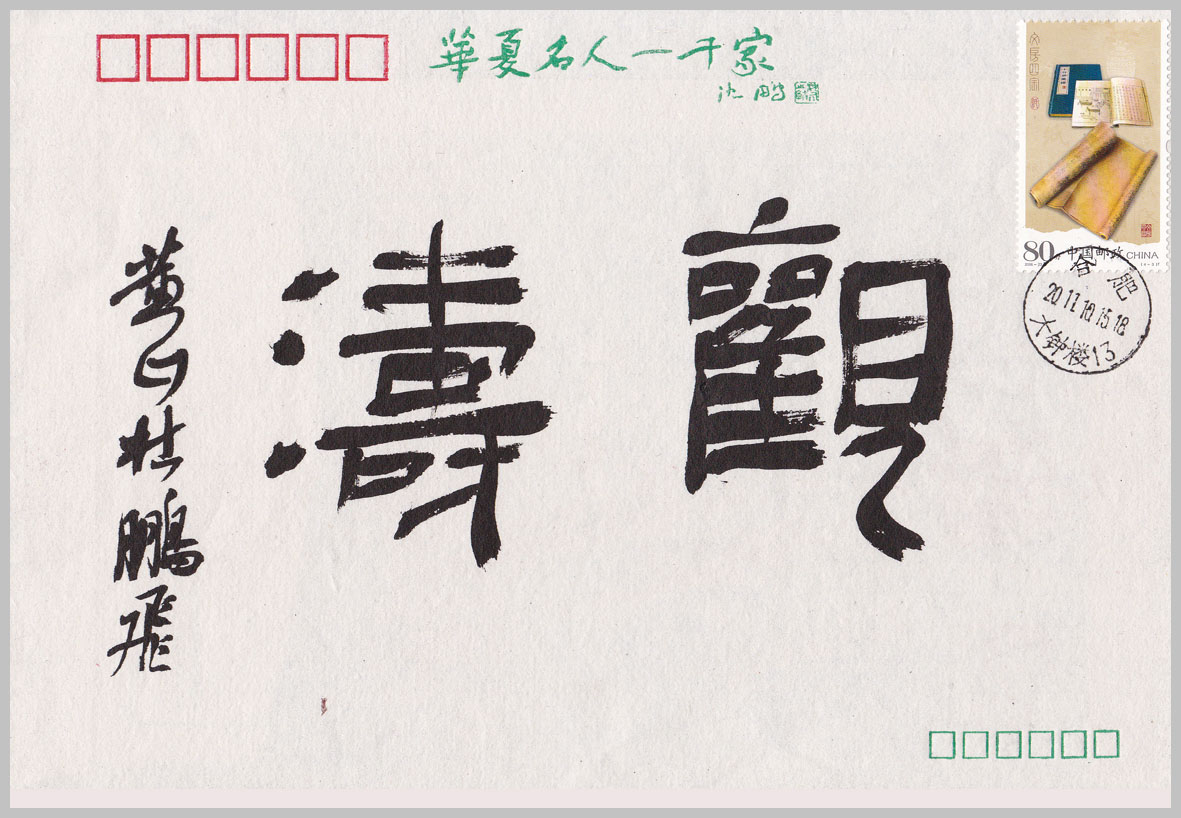 華夏名人一千家
沈鹏
觀濤
黄山杜鵬飛
文房四宝
80分 中国邮政 CHINA
合肥
2011.10.15.18
大钟楼13